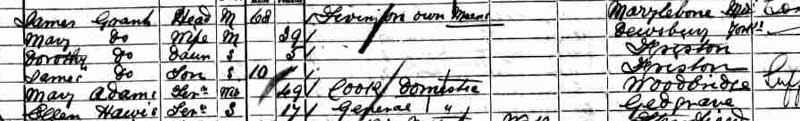 James Grant Head M 68 Living on own Means Marylebone
Mary Do Wife M 39 Dewsbury York
Dorothy Do Daur S 5 Friston
James Do Son S 10 Friston
Mary Adams Serv 49 Cook Domestic Woodbridge Suff
Ellen Hawis Serv S 17 General " Gedgrave